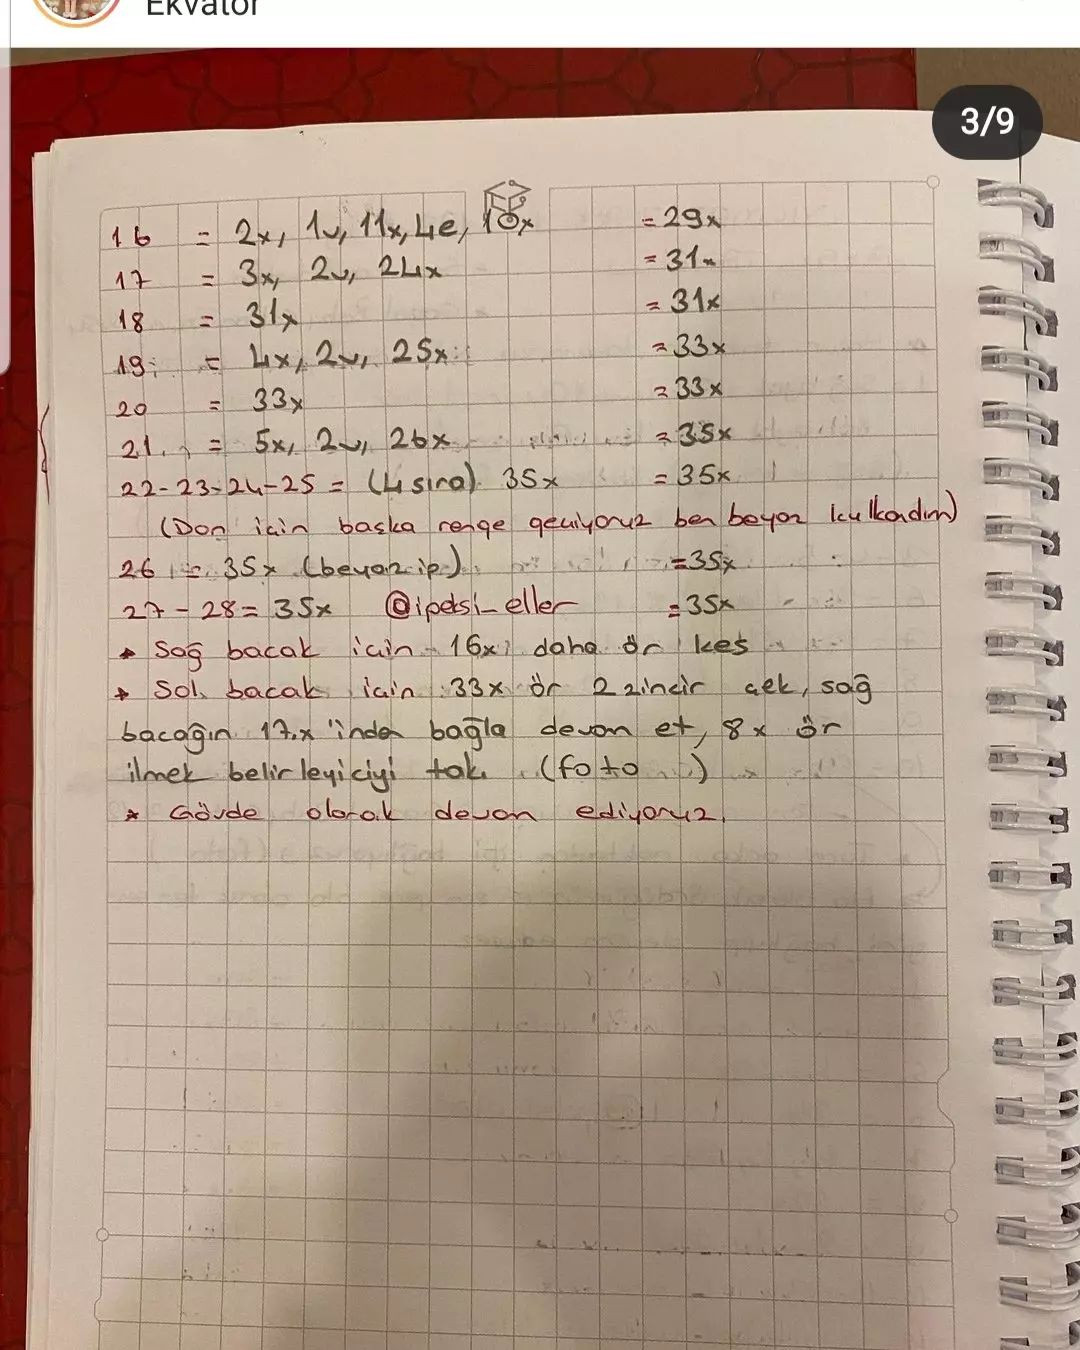 Ekvator
3/9
16 = 2x, 1v, 11x, 4e, 10x = 29x
17 = 3x, 2v, 24x = 31x
18 = 31x = 31x
19 = 4x, 2v, 25x = 33x
20 = 33x = 33x
21 = 5x, 2v, 26x = 35x
22-23-24-25 = (4 sıra) 35x = 35x
(Don için başka renge geçiyoruz ben beyaz kullandım)
26 = 35x (beyaz ip) = 35x
27-28 = 35x @ipeksi_eller = 35x
* Sağ bacak için 16x daha ör kes
* Sol bacak için 33x ör 2 zincir çek, sağ
bacağın 17.x'inden bağla devam et, 8x ör
ilmek belirleyiciyi tak. (foto )
* Gövde olarak devam ediyoruz.